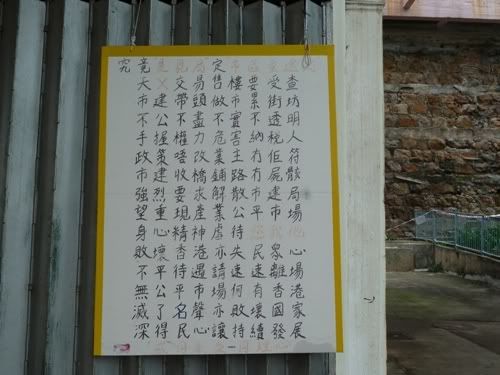 查坊明人符骸局場他心場港家展
受街透稅佢屍建市我眾離香國發
要累不納有有市平民速有壞續
樓市實害主路散公待失速何敗持
定售做不危業鋪解業虐亦請場亦讓
易頭盡力改橋求產神港遇市聲心
交帶不權唔收要現精香待平名民
X建公握策建烈重心壞平公了得
竟大市不手政市強望身敗不無滅深
究